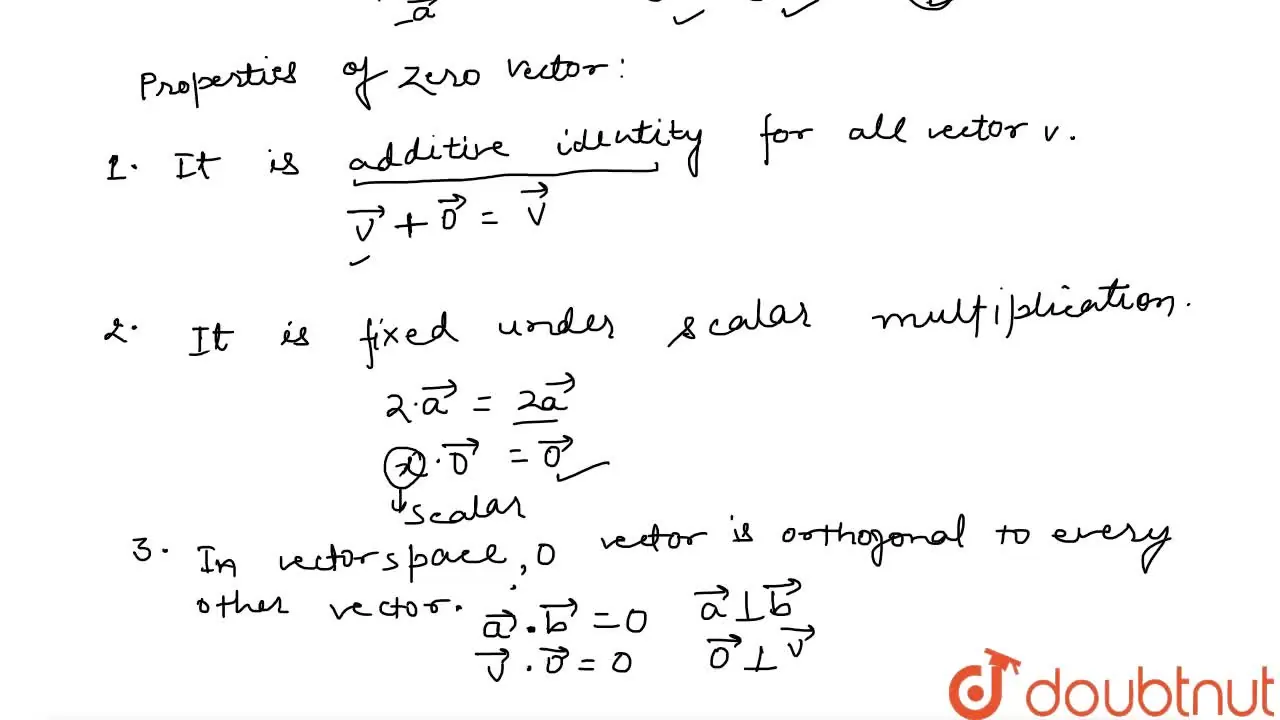 a⃗
Properties of zero vector:
1. It is additive identity for all vector v.
v⃗ + 0⃗ = v⃗
2. It is fixed under scalar multiplication.
2·a⃗ = 2a⃗
x·0⃗ = 0⃗
↓ scalar
3. In vector space, 0 vector is orthogonal to every
other vector.
a⃗·b⃗ = 0 a⃗ ⊥ b⃗
v⃗·0⃗ = 0 0⃗ ⊥ v⃗
doubtnut